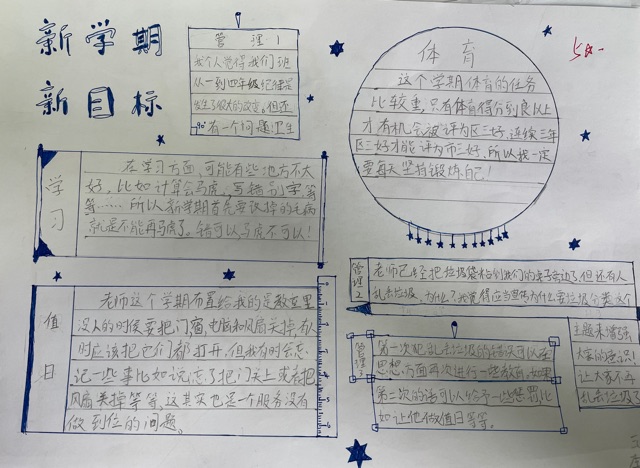 新学期
新目标
管理1
我个人觉得我们班
从一到四年级纪律是
发生了很大的改变。但还
有一个问题:卫生
体育
这个学期体育的任务
比较重,只有体育得分到良以上
才有机会被评为区三好,连续三年
区三好才能评为市三好、所以我一定
要每人坚持锻炼自己!
学习
在学习方面,可能有些地方不太
好,比如计算会马虎、写错别字等
等……所以新学期首先要误掉的毛病
就是不能再马虎了。错可以马虎不可以!
管理2
老师已经把垃圾袋粘到我们的桌子旁边了,但还有人
乱丢垃圾、为什么?我觉得应当宣传为什么要垃圾分类这个
主题来增强
大家的意识!
让大家不再
乱丢垃圾了
值日
老师这个学期布置给我的是教室里
没人的时侯要把门窗、电脑和风扇关掉有人
时应该把它们都打开,但我有时会忘
记一些事比如说忘了把门关上或者把
风扇关掉等等,这其实也是个服务没有
做到位的问题。
管理3
第一次犯乱丢垃圾的错误可以在
思想方面再次进行一些教育,如果
第二次的话可以给予一些惩罚比
如让他做值日等等。